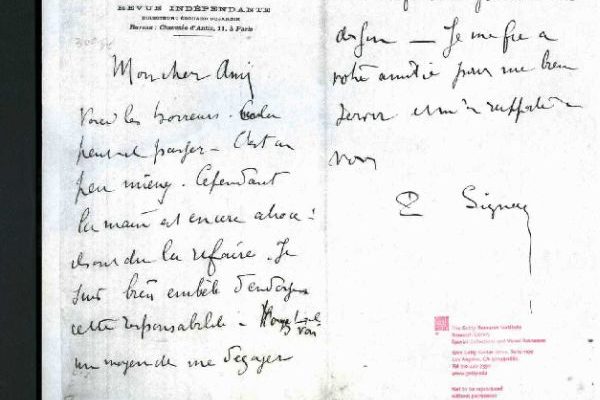 REVUE INDÉPENDANTE
DIRECTEUR : ÉDOUARD DUJARDIN
Bureau : Chaussée d'Antin, 11, à Paris
Mon cher Ami
Voici les horreurs. Cela
peut-il passer — C'est un
peu mieux. Cependant
la main est encore atroce :
la refaire. Je
suis bien embêté d'endosser
cette responsabilité —
un moyen de me dégager
— Je me fie à
votre amitié pour me bien
servir et m'en rapporte à
vous
P Signac
The Getty Research Institute
Research Library
Special Collections and Visual Resources
1200 Getty Center Drive, Suite 1100
Los Angeles, CA
www.getty.edu
Not to be reproduced
without permission